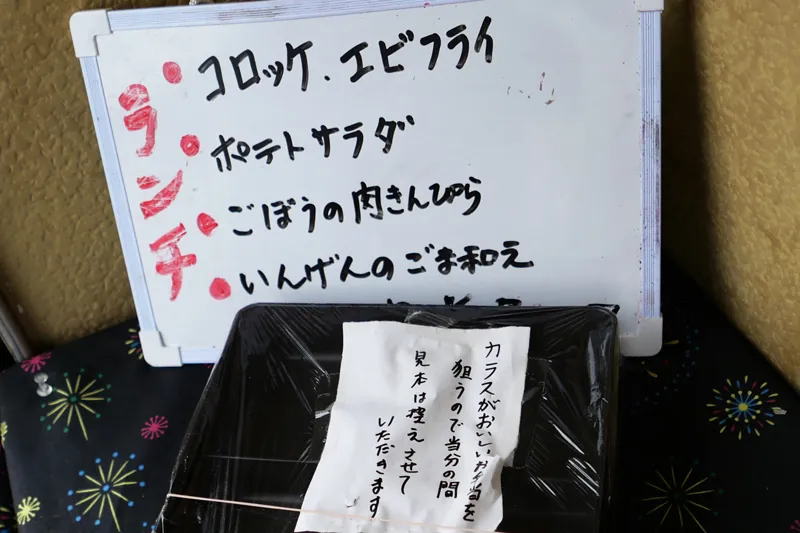 ランチ
・コロッケ、エビフライ
・ポテトサラダ
・ごぼうの肉きんぴら
・いんげんのごま和え
カラスがおいしいお弁当を
狙うので当分の間
見本は控えさせて
いただきます